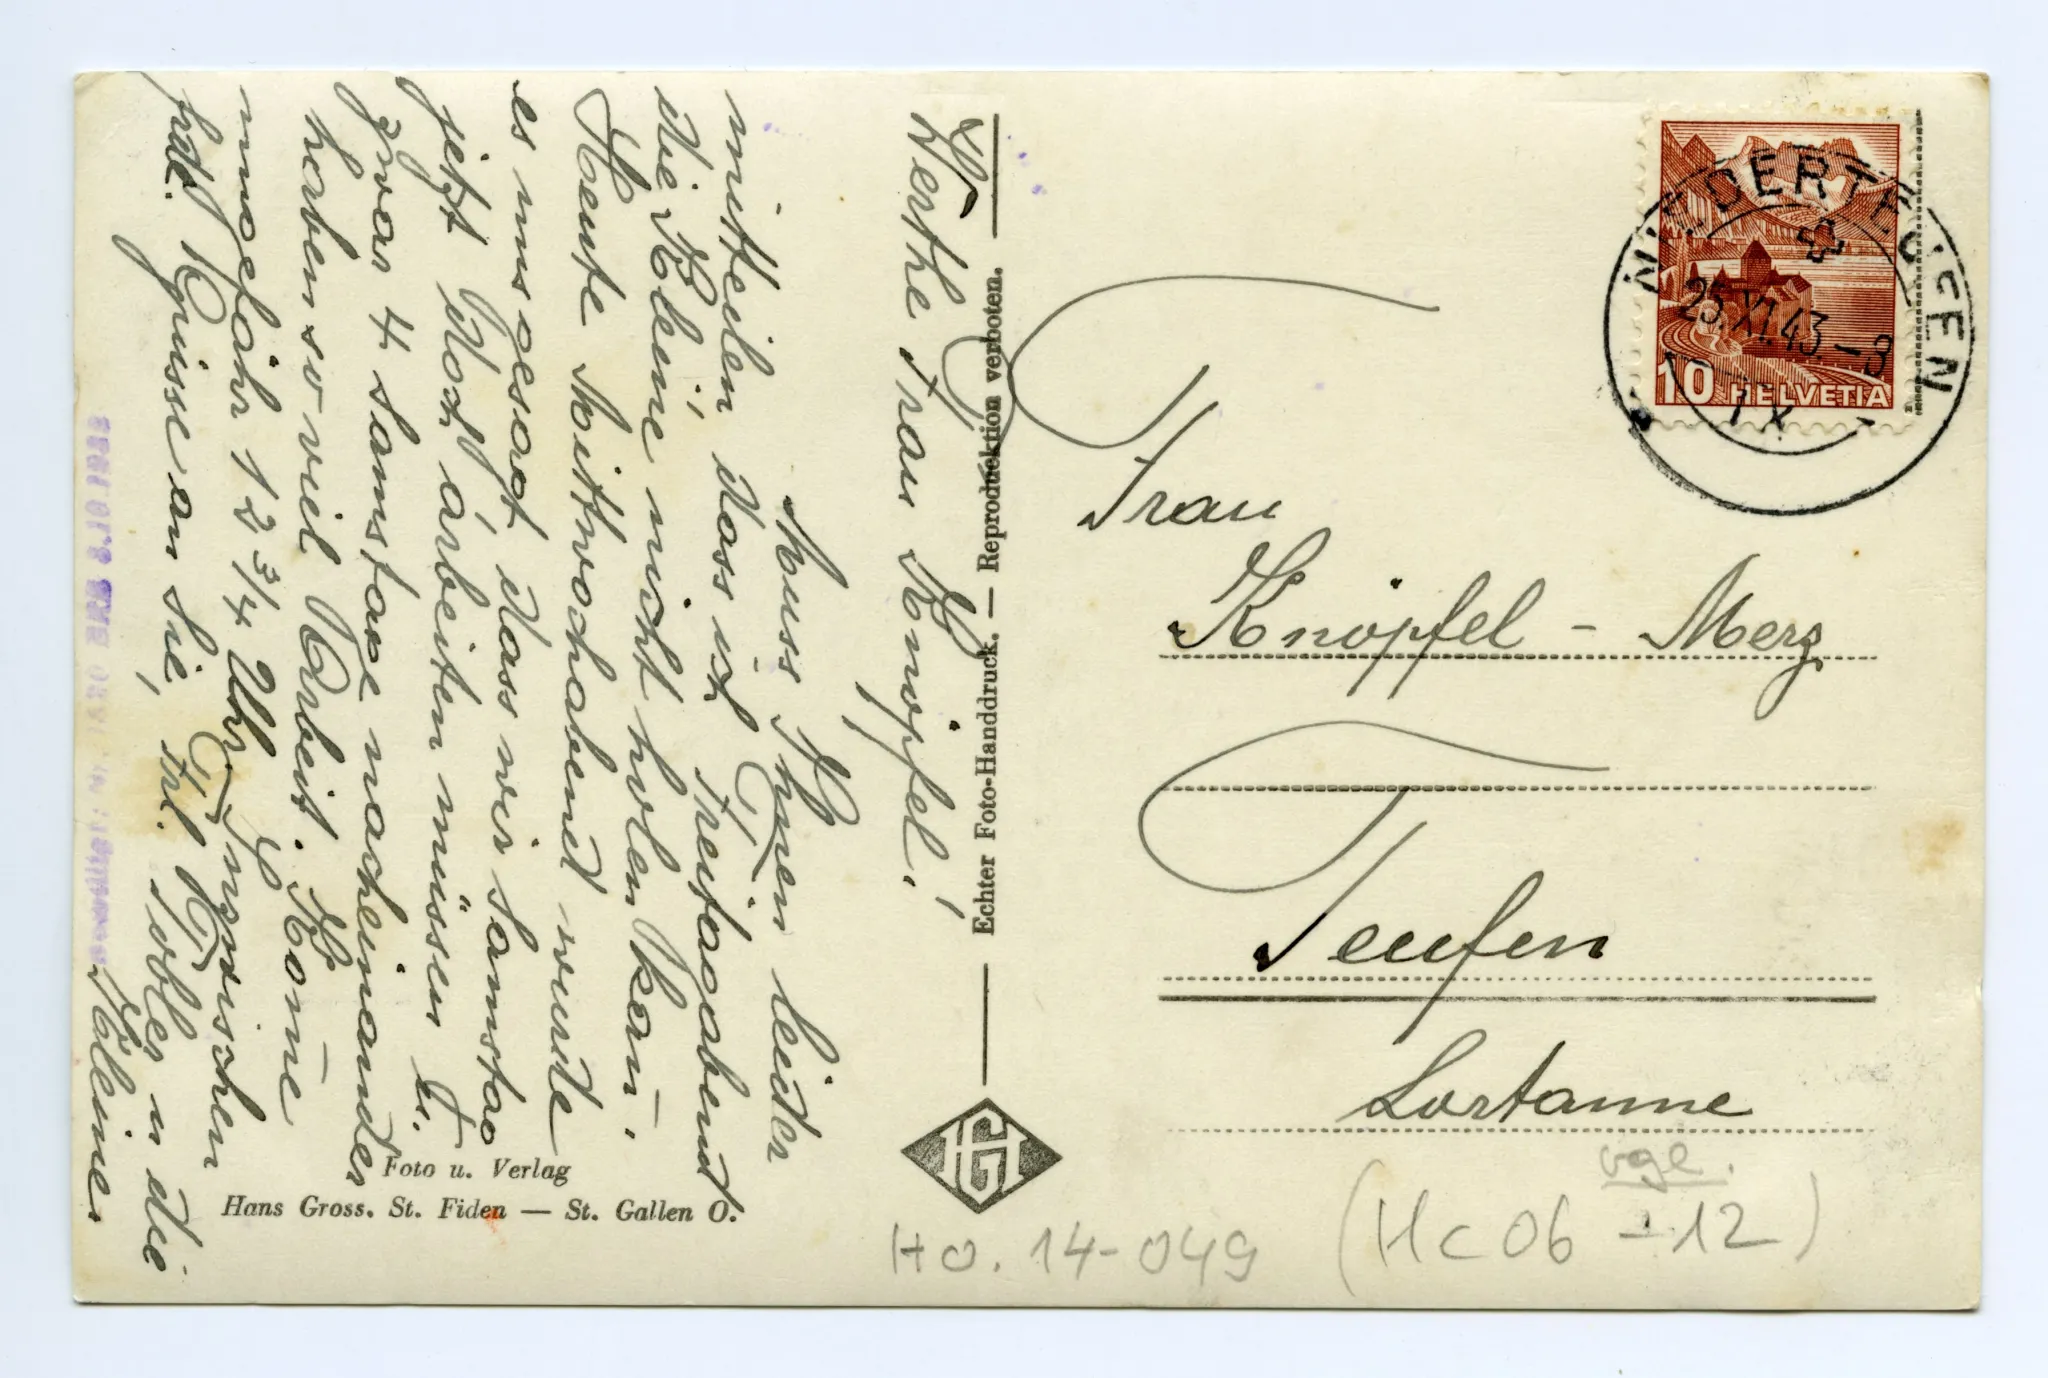 Werthe Frau Knöpfel!
Muss Ihnen leider
mitteilen dass ich Freitagabend
die Kleine nicht holen kan̄.
Heute Mittwochabend wurde
es uns gesagt, dass wir Samstag
jetzt doch arbeiten müssen u.
zwar 4 Samstage nacheinander
haben so viel Arbeit. Kom̄e
ungefähr 12 3/4 Uhr. Inzwischen
hdl. Grüsse an Sie, Frl. Tobler u die
Kleine.
Echter Foto-Handdruck. — Reproduktion verboten.
HG
Foto u. Verlag
Hans Gross, St. Fiden — St. Gallen O.
NIEDERTEUFEN
25.XI.43.-8
10 HELVETIA
Frau
Knöpfel - Merz
Teufen
Lortanne
vgl.
HO. 14-049 (Hc 06 - 12)